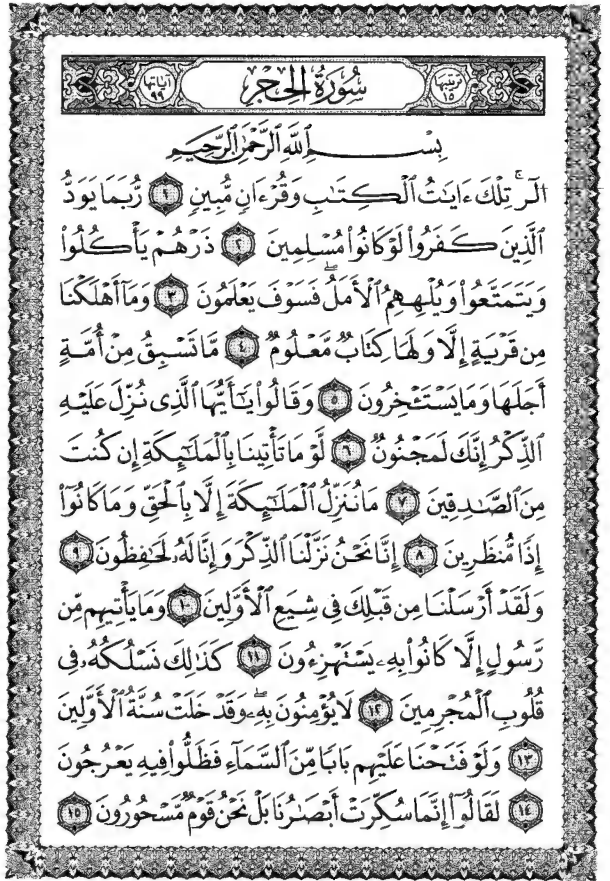 ترتيبها ١٥ سُورَةُ الْحِجْرِ آياتها ٩٩
بِسْمِ ٱللَّهِ ٱلرَّحْمَٰنِ ٱلرَّحِيمِ
الٓر ۚ تِلْكَ ءَايَٰتُ ٱلْكِتَٰبِ وَقُرْءَانٍ مُّبِينٍ ١ رُّبَمَا يَوَدُّ
ٱلَّذِينَ كَفَرُوا۟ لَوْ كَانُوا۟ مُسْلِمِينَ ٢ ذَرْهُمْ يَأْكُلُوا۟
وَيَتَمَتَّعُوا۟ وَيُلْهِهِمُ ٱلْأَمَلُ ۖ فَسَوْفَ يَعْلَمُونَ ٣ وَمَآ أَهْلَكْنَا
مِن قَرْيَةٍ إِلَّا وَلَهَا كِتَابٌ مَّعْلُومٌ ٤ مَّا تَسْبِقُ مِنْ أُمَّةٍ
أَجَلَهَا وَمَا يَسْتَـْٔخِرُونَ ٥ وَقَالُوا۟ يَٰٓأَيُّهَا ٱلَّذِى نُزِّلَ عَلَيْهِ
ٱلذِّكْرُ إِنَّكَ لَمَجْنُونٌ ٦ لَّوْ مَا تَأْتِينَا بِٱلْمَلَٰٓئِكَةِ إِن كُنتَ
مِنَ ٱلصَّٰدِقِينَ ٧ مَا نُنَزِّلُ ٱلْمَلَٰٓئِكَةَ إِلَّا بِٱلْحَقِّ وَمَا كَانُوٓا۟
إِذًا مُّنظَرِينَ ٨ إِنَّا نَحْنُ نَزَّلْنَا ٱلذِّكْرَ وَإِنَّا لَهُۥ لَحَٰفِظُونَ ٩
وَلَقَدْ أَرْسَلْنَا مِن قَبْلِكَ فِى شِيَعِ ٱلْأَوَّلِينَ ١٠ وَمَا يَأْتِيهِم مِّن
رَّسُولٍ إِلَّا كَانُوا۟ بِهِۦ يَسْتَهْزِءُونَ ١١ كَذَٰلِكَ نَسْلُكُهُۥ فِى
قُلُوبِ ٱلْمُجْرِمِينَ ١٢ لَا يُؤْمِنُونَ بِهِۦ ۖ وَقَدْ خَلَتْ سُنَّةُ ٱلْأَوَّلِينَ
١٣ وَلَوْ فَتَحْنَا عَلَيْهِم بَابًا مِّنَ ٱلسَّمَآءِ فَظَلُّوا۟ فِيهِ يَعْرُجُونَ
١٤ لَقَالُوٓا۟ إِنَّمَا سُكِّرَتْ أَبْصَٰرُنَا بَلْ نَحْنُ قَوْمٌ مَّسْحُورُونَ ١٥